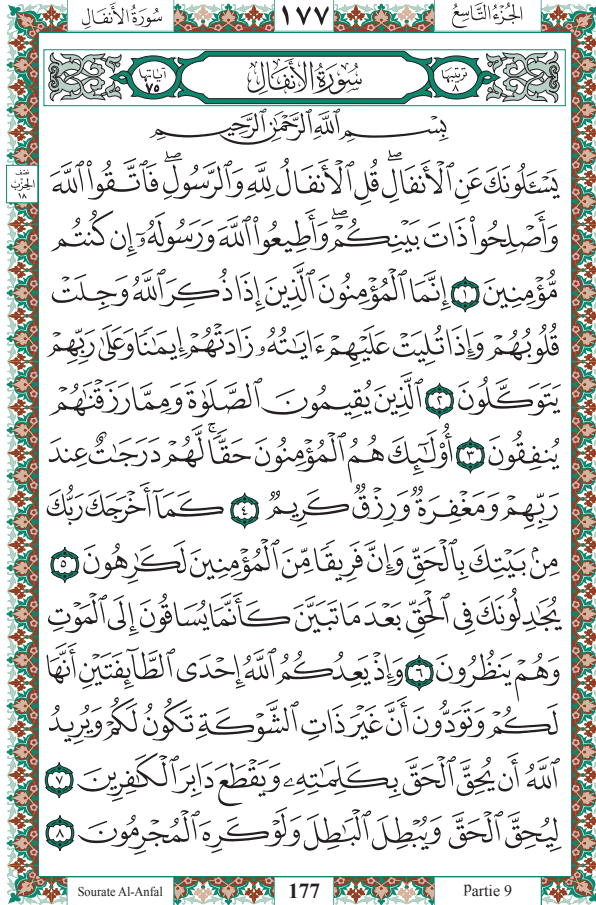 سُورَةُ الأَنفَالِ ١٧٧ الجُزْءُ التَّاسِعُ
آيَاتُهَا ٧٥ سُورَةُ الأَنفَالِ تَرْتِيبُهَا ٨
بِسْمِ ٱللَّهِ ٱلرَّحْمَٰنِ ٱلرَّحِيمِ
يَسْـَٔلُونَكَ عَنِ ٱلْأَنفَالِ ۖ قُلِ ٱلْأَنفَالُ لِلَّهِ وَٱلرَّسُولِ ۖ فَٱتَّقُوا۟ ٱللَّهَ
نصف الحزب ١٨
وَأَصْلِحُوا۟ ذَاتَ بَيْنِكُمْ ۖ وَأَطِيعُوا۟ ٱللَّهَ وَرَسُولَهُۥٓ إِن كُنتُم
مُّؤْمِنِينَ ١ إِنَّمَا ٱلْمُؤْمِنُونَ ٱلَّذِينَ إِذَا ذُكِرَ ٱللَّهُ وَجِلَتْ
قُلُوبُهُمْ وَإِذَا تُلِيَتْ عَلَيْهِمْ ءَايَٰتُهُۥ زَادَتْهُمْ إِيمَٰنًا وَعَلَىٰ رَبِّهِمْ
يَتَوَكَّلُونَ ٢ ٱلَّذِينَ يُقِيمُونَ ٱلصَّلَوٰةَ وَمِمَّا رَزَقْنَٰهُمْ
يُنفِقُونَ ٣ أُو۟لَٰٓئِكَ هُمُ ٱلْمُؤْمِنُونَ حَقًّا ۚ لَّهُمْ دَرَجَٰتٌ عِندَ
رَبِّهِمْ وَمَغْفِرَةٌ وَرِزْقٌ كَرِيمٌ ٤ كَمَآ أَخْرَجَكَ رَبُّكَ
مِنۢ بَيْتِكَ بِٱلْحَقِّ وَإِنَّ فَرِيقًا مِّنَ ٱلْمُؤْمِنِينَ لَكَٰرِهُونَ ٥
يُجَٰدِلُونَكَ فِى ٱلْحَقِّ بَعْدَ مَا تَبَيَّنَ كَأَنَّمَا يُسَاقُونَ إِلَى ٱلْمَوْتِ
وَهُمْ يَنظُرُونَ ٦ وَإِذْ يَعِدُكُمُ ٱللَّهُ إِحْدَى ٱلطَّآئِفَتَيْنِ أَنَّهَا
لَكُمْ وَتَوَدُّونَ أَنَّ غَيْرَ ذَاتِ ٱلشَّوْكَةِ تَكُونُ لَكُمْ وَيُرِيدُ
ٱللَّهُ أَن يُحِقَّ ٱلْحَقَّ بِكَلِمَٰتِهِۦ وَيَقْطَعَ دَابِرَ ٱلْكَٰفِرِينَ ٧
لِيُحِقَّ ٱلْحَقَّ وَيُبْطِلَ ٱلْبَٰطِلَ وَلَوْ كَرِهَ ٱلْمُجْرِمُونَ ٨
Sourate Al-Anfal 177 Partie 9